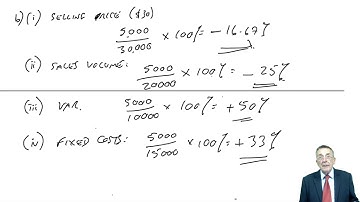 b) (i) SELLING PRICE ($30)
5,000 / 30,000 × 100% = - 16.67%
(ii) SALES VOLUME: 5000 / 20000 × 100% = - 25%
(iii) VAR. 5000 / 10000 × 100% = + 50%
(iv) FIXED COSTS: 5000 / 15000 × 100% = + 33%